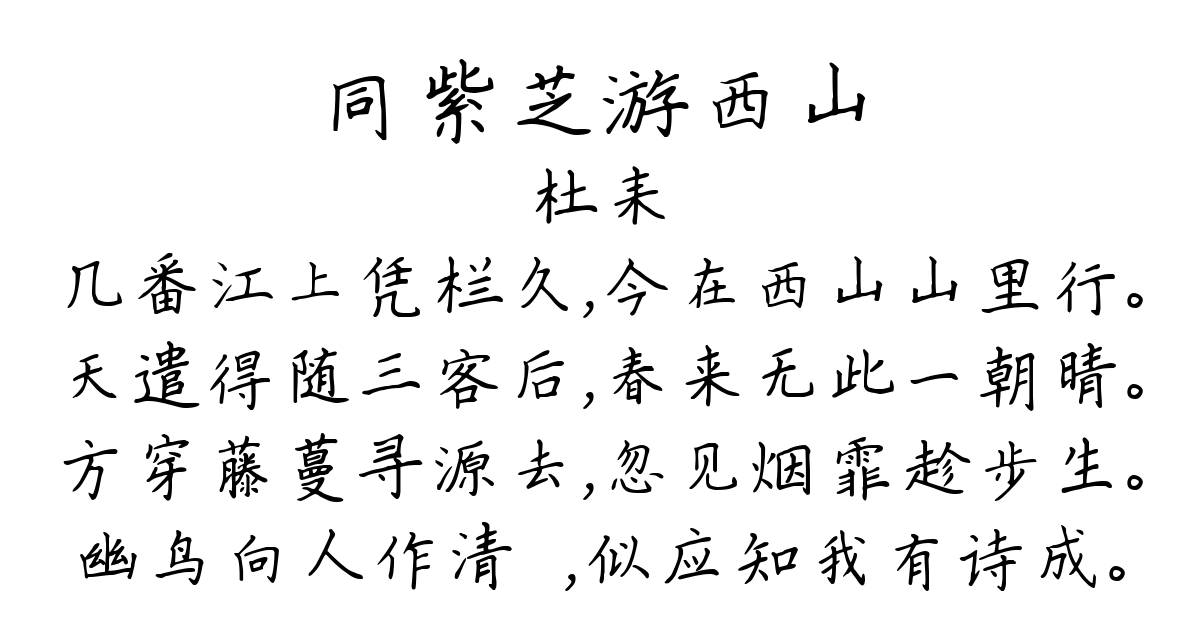 同紫芝游西山
杜耒
几番江上凭栏久,今在西山山里行。
天遣得随三客后,春来无此一朝晴。
方穿藤蔓寻源去,忽见烟霏趁步生。
幽鸟向人作清 ,似应知我有诗成。